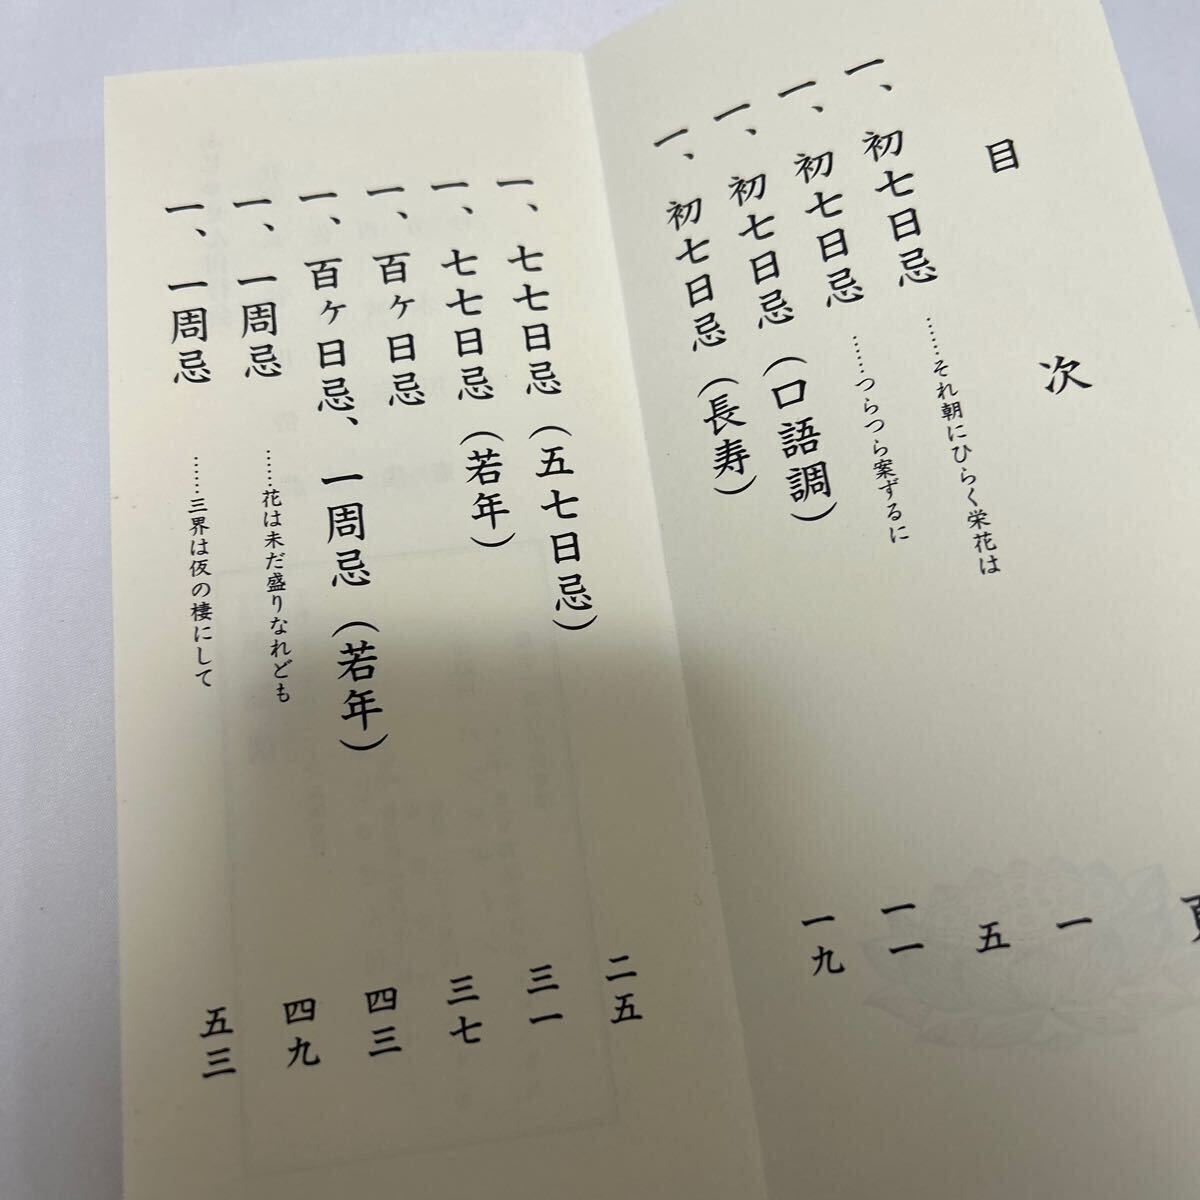 目次
頁
一、初七日忌 ……それ朝にひらく栄花は 一
一、初七日忌 ……つらつら案ずるに 五
一、初七日忌（口語調） 一一
一、初七日忌（長寿） 一九
一、七七日忌（五七日忌） 二五
一、七七日忌（若年） 三一
一、百ヶ日忌 三七
一、百ヶ日忌、一周忌（若年） 四三
一、一周忌 ……花は未だ盛りなれども 四九
一、一周忌 ……三界は仮の棲にして 五三